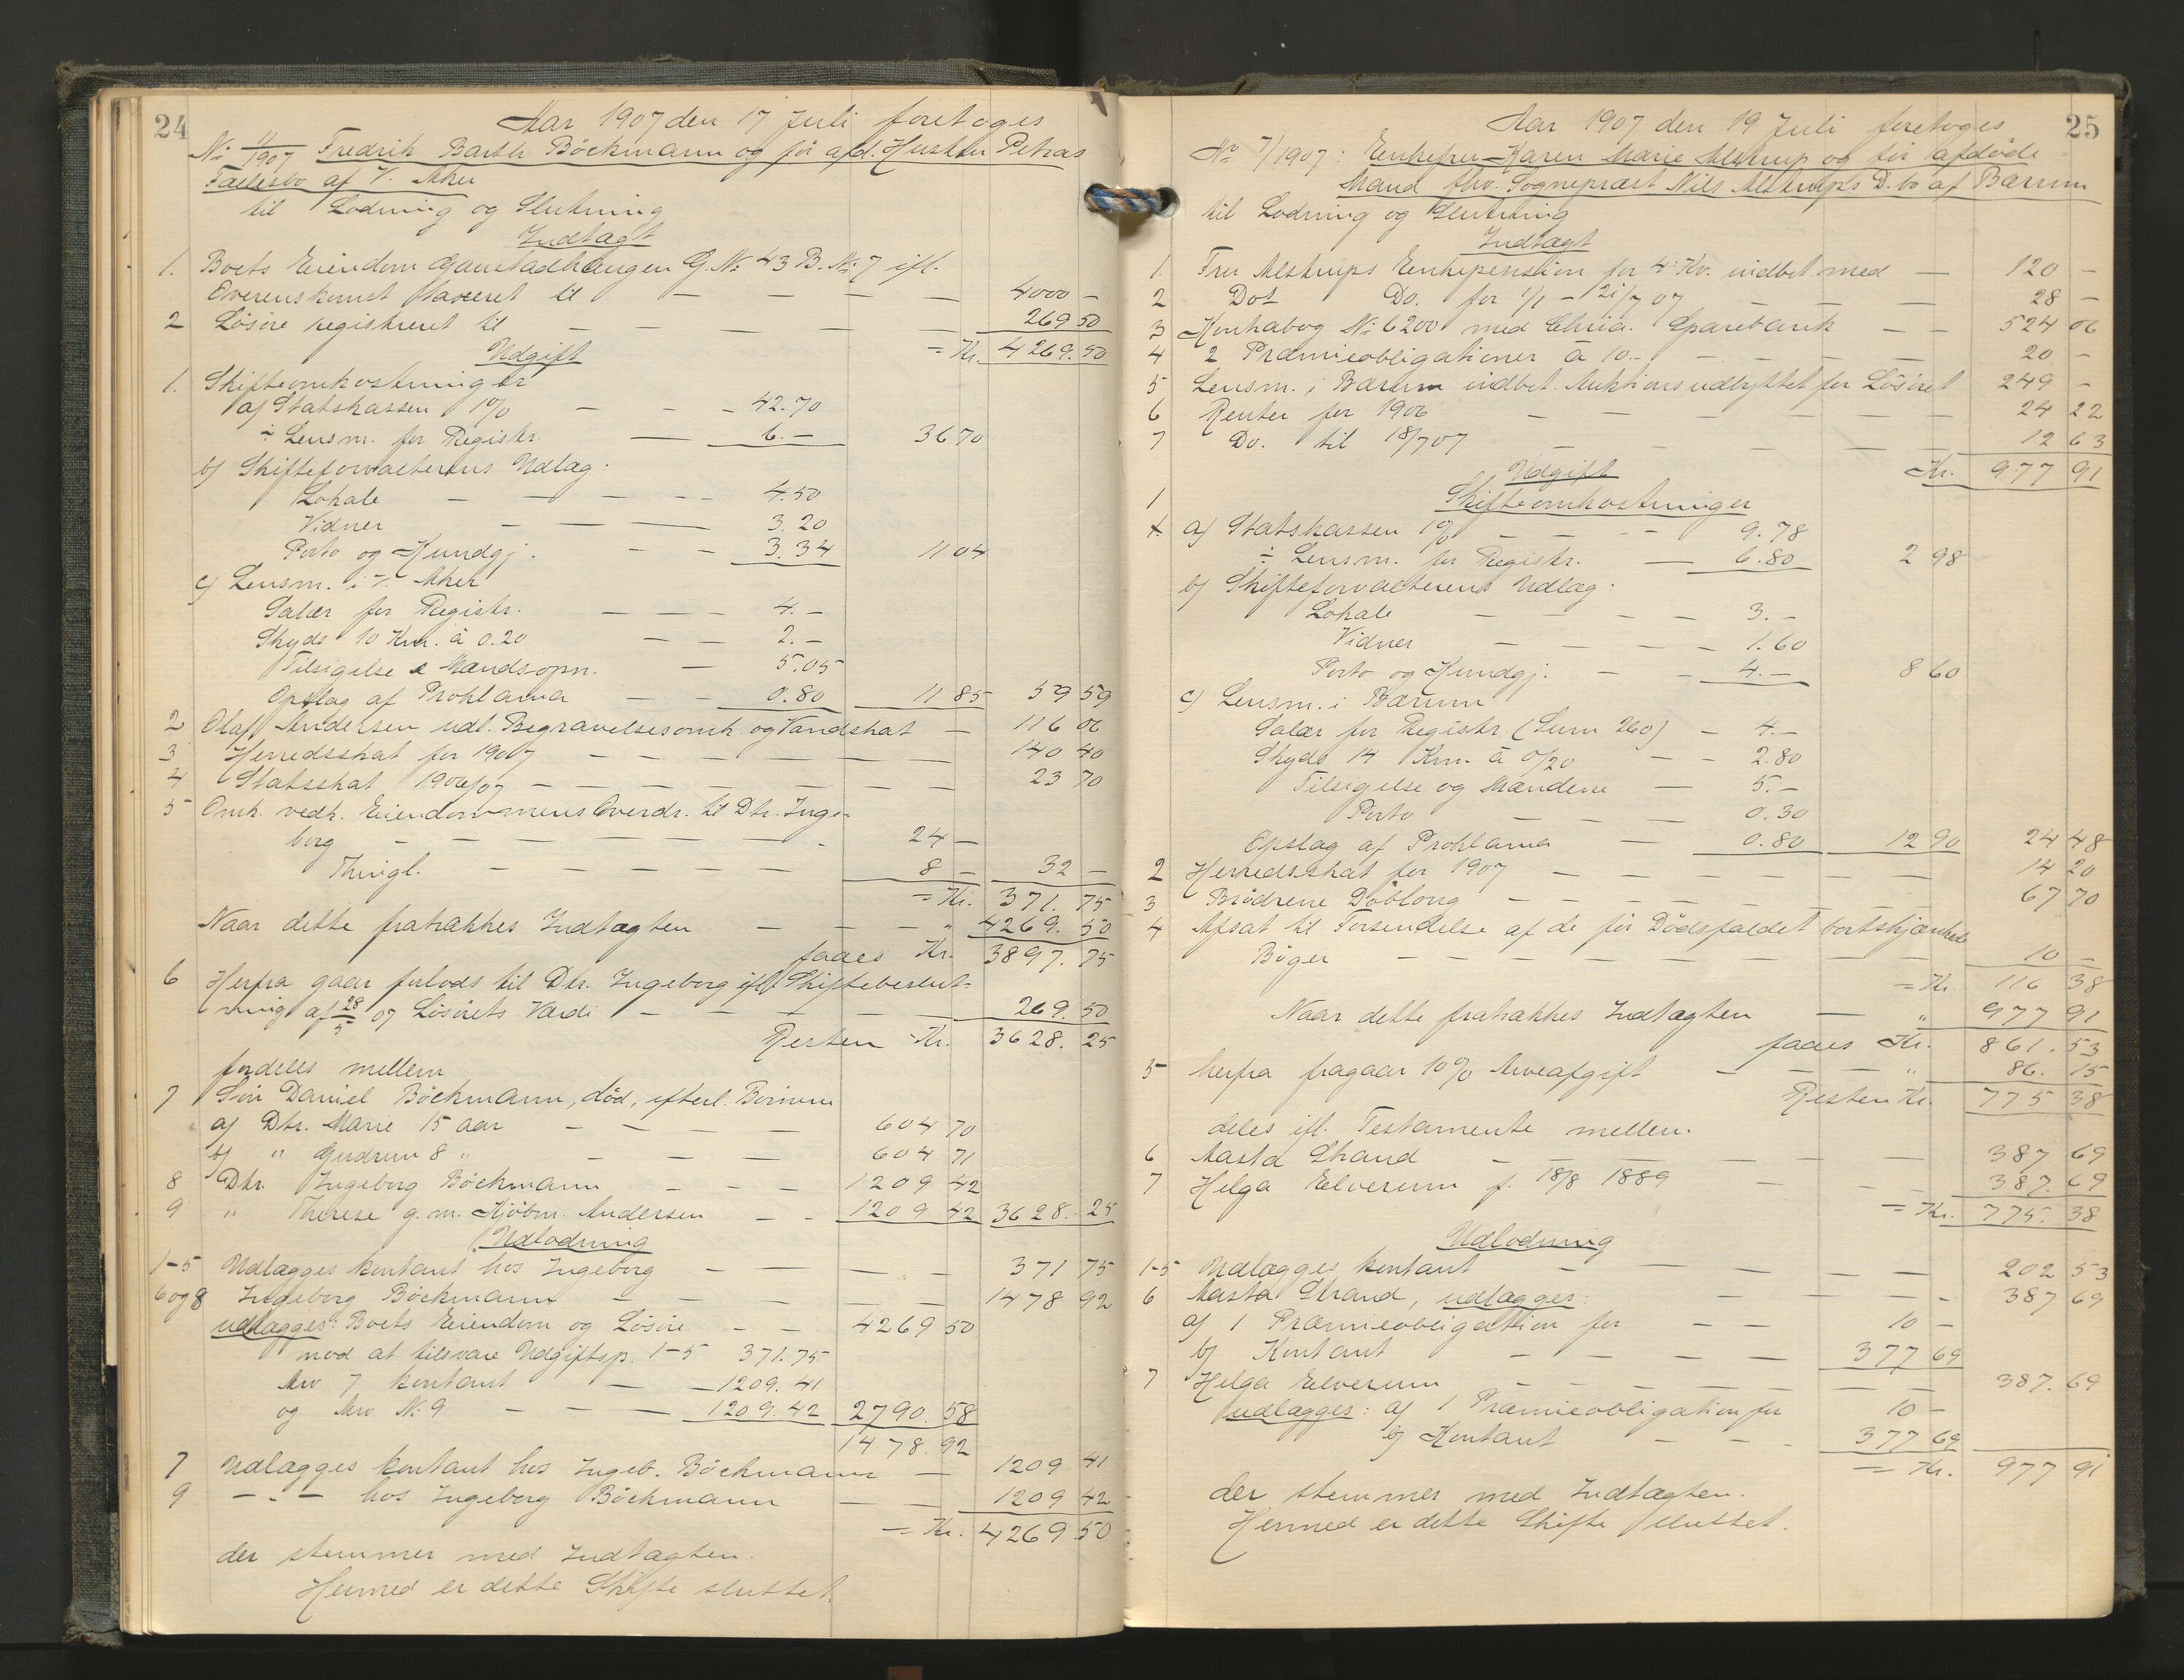 24
Aar 1907 den 17 Juli foretoges
No 11/1907 Fredrik Barth Böckmann og før afd. Hustru Petras
Fællesbo af V. Aker
til Lodning og Slutning
Indtægt
1. Boets Eiendom Gaustadhaugen G. No 43 B. No 7 ifl.
Overenskomst taxeret til — — — — — 4000 –
2 Løsøre registreret til — — — — — 269 50
= Kr. 4269. 50
Udgift
1. Skifteomkostninger
a) Statskassen 1% — — 42.70
÷ Lensm. for Registr. — 6.– 36 70
b) Skifteforvalterens Udlæg:
Lokale — — — — 4.50
Vidner — — — 3.20
Porto og Kundgj. — — 3.34 11 04
c) Lensm. i V. Aker
Salær for Registr. — — — 4.–
Skyds 10 Km. à 0.20 — — 2.–
Tilsigelse & Mændsopn. — 5.05
Opslag af Proklama — — 0.80 11 85 59 59
2 Olaf Andersen udl. Begravelsesomk. og Vandskat — 116 06
3 Herredsskat for 1907 — — — — — 140 40
4 Statsskat 1906/07 — — — — — 23 70
5 Omk. vedk. Eiendommens Overdr. til Dtr. Inge-
borg — — — — — 24 –
Thingl. — — — — — 8 – 32 –
= Kr. 371. 75
Naar dette fratrækkes Indtægten — — — " 4269. 50
faaes Kr. 3897. 75
6 Herfra gaar forlods til Dtr. Ingeborg ifl. Skiftebeslut-
ning af 28/5 07 Løsørets Værdi — — — — 269. 50
Resten Kr. 3628. 25
fordeles mellem
7 Søn Daniel Böckmann, død, efterl. Børnene
a) Dtr. Marie 15 aar — — — — 604 70
b) " Gudrun 8 " — — — 604 71
8 Dtr. Ingeborg Böckmann — — — 1209 42
9 " Therese g. m. Kjøbm. Andersen — — 1209 42 3628. 25
Udlodning
1-5 Udlægges kontant hos Ingeborg — — — — 371 75
6 og 8 Ingeborg Böckmann — — — — 1478 92
udlægges: Boets Eiendom og Løsøre — — 4269 50
mod at tilsvare Udgiftsp. 1-5 371.75
Arv 7 kontant — — 1209.41
og Arv No 9 — — — 1209.42 2790. 58
1478. 92
7 Udlægges kontant hos Ingeb. Böckmann — 1209 41
9 – „ – hos Ingeborg Böckmann — — 1209 42
= Kr. 4269 50
der stemmer med Indtægten.
Hermed er dette Skifte sluttet
25
Aar 1907 den 19 Juli foretoges
No 7/1907: Enkefru Karen Marie Alstrup og før afdøde
Mand fhv. Sogneprest Nils Alstrups D.bo af Bærum
til Lodning og Slutning
Indtægt
1. Fru Alstrups Enkepension for 4 Kv. indbet. med — 120 –
2 Do Do. for 1/1 – 21/7 07 — — — 28 –
3 Kontrabog No 6200 med Chria. Sparebank — — 524 06
4 2 Præmieobligationer à 10.– — — — — 20 –
5 Lensm. i Bærum indbet. Auktionsudbyttet for Løsøret 249 –
6 Renter for 1906 — — — — — 24 22
7 Do. til 18/7 07 — — — — — 12 63
Kr. 977 91
Udgift
1 Skifteomkostninger
a) Statskassen 1% — — — 9.78
÷ Lensm. for Registr. — 6.80 2 98
b) Skifteforvalterens Udlæg:
Lokale — — — — 3.–
Vidner — — — — 1.60
Porto og Kundgj. — — 4.– 8 60
c) Lensm. i Bærum
Salær for Registr (Sum 260) — 4.–
Skyds 14 Km. à 0/20 — — 2.80
Tilsigelse og Mændene — 5.–
Porto — — — 0.30
Opslag af Proklama — 0.80 12 90 24 48
2 Herredsskat for 1907 — — — — — 14 20
3 Brødrene Døblong — — — — — 67 70
4 Afsat til Forsendelse af de før Dødsfaldet bortskjænkede
Bøger — — — — — — — 10 –
= Kr. 116 38
Naar dette fratrækkes Indtægten — „ 977 91
faaes Kr. 861. 53
5 herfra fragaar 10% Arveafgift — — — „ 86. 15
Resten Kr. 775 38
deles ifl. Testamente mellem.
6 Aasta Strand — — — — — 387 69
7 Helga Elverum f. 18/8 1889 — — — 387. 69
= Kr. 775. 38
Udlodning
1-5 Udlægges kontant — — — — 202 53
6 Aasta Strand, udlægges: — — — — 387 69
a) 1 Præmieobligation for — — 10 –
b) Kontant — — — — 377 69
7 Helga Elverum — — — — — 387. 69
udlægges: a) 1 Præmieobligation for 10 –
b) Kontant — — — 377 69
= Kr. 977 91
der stemmer med Indtægten.
Hermed er dette Skifte sluttet.